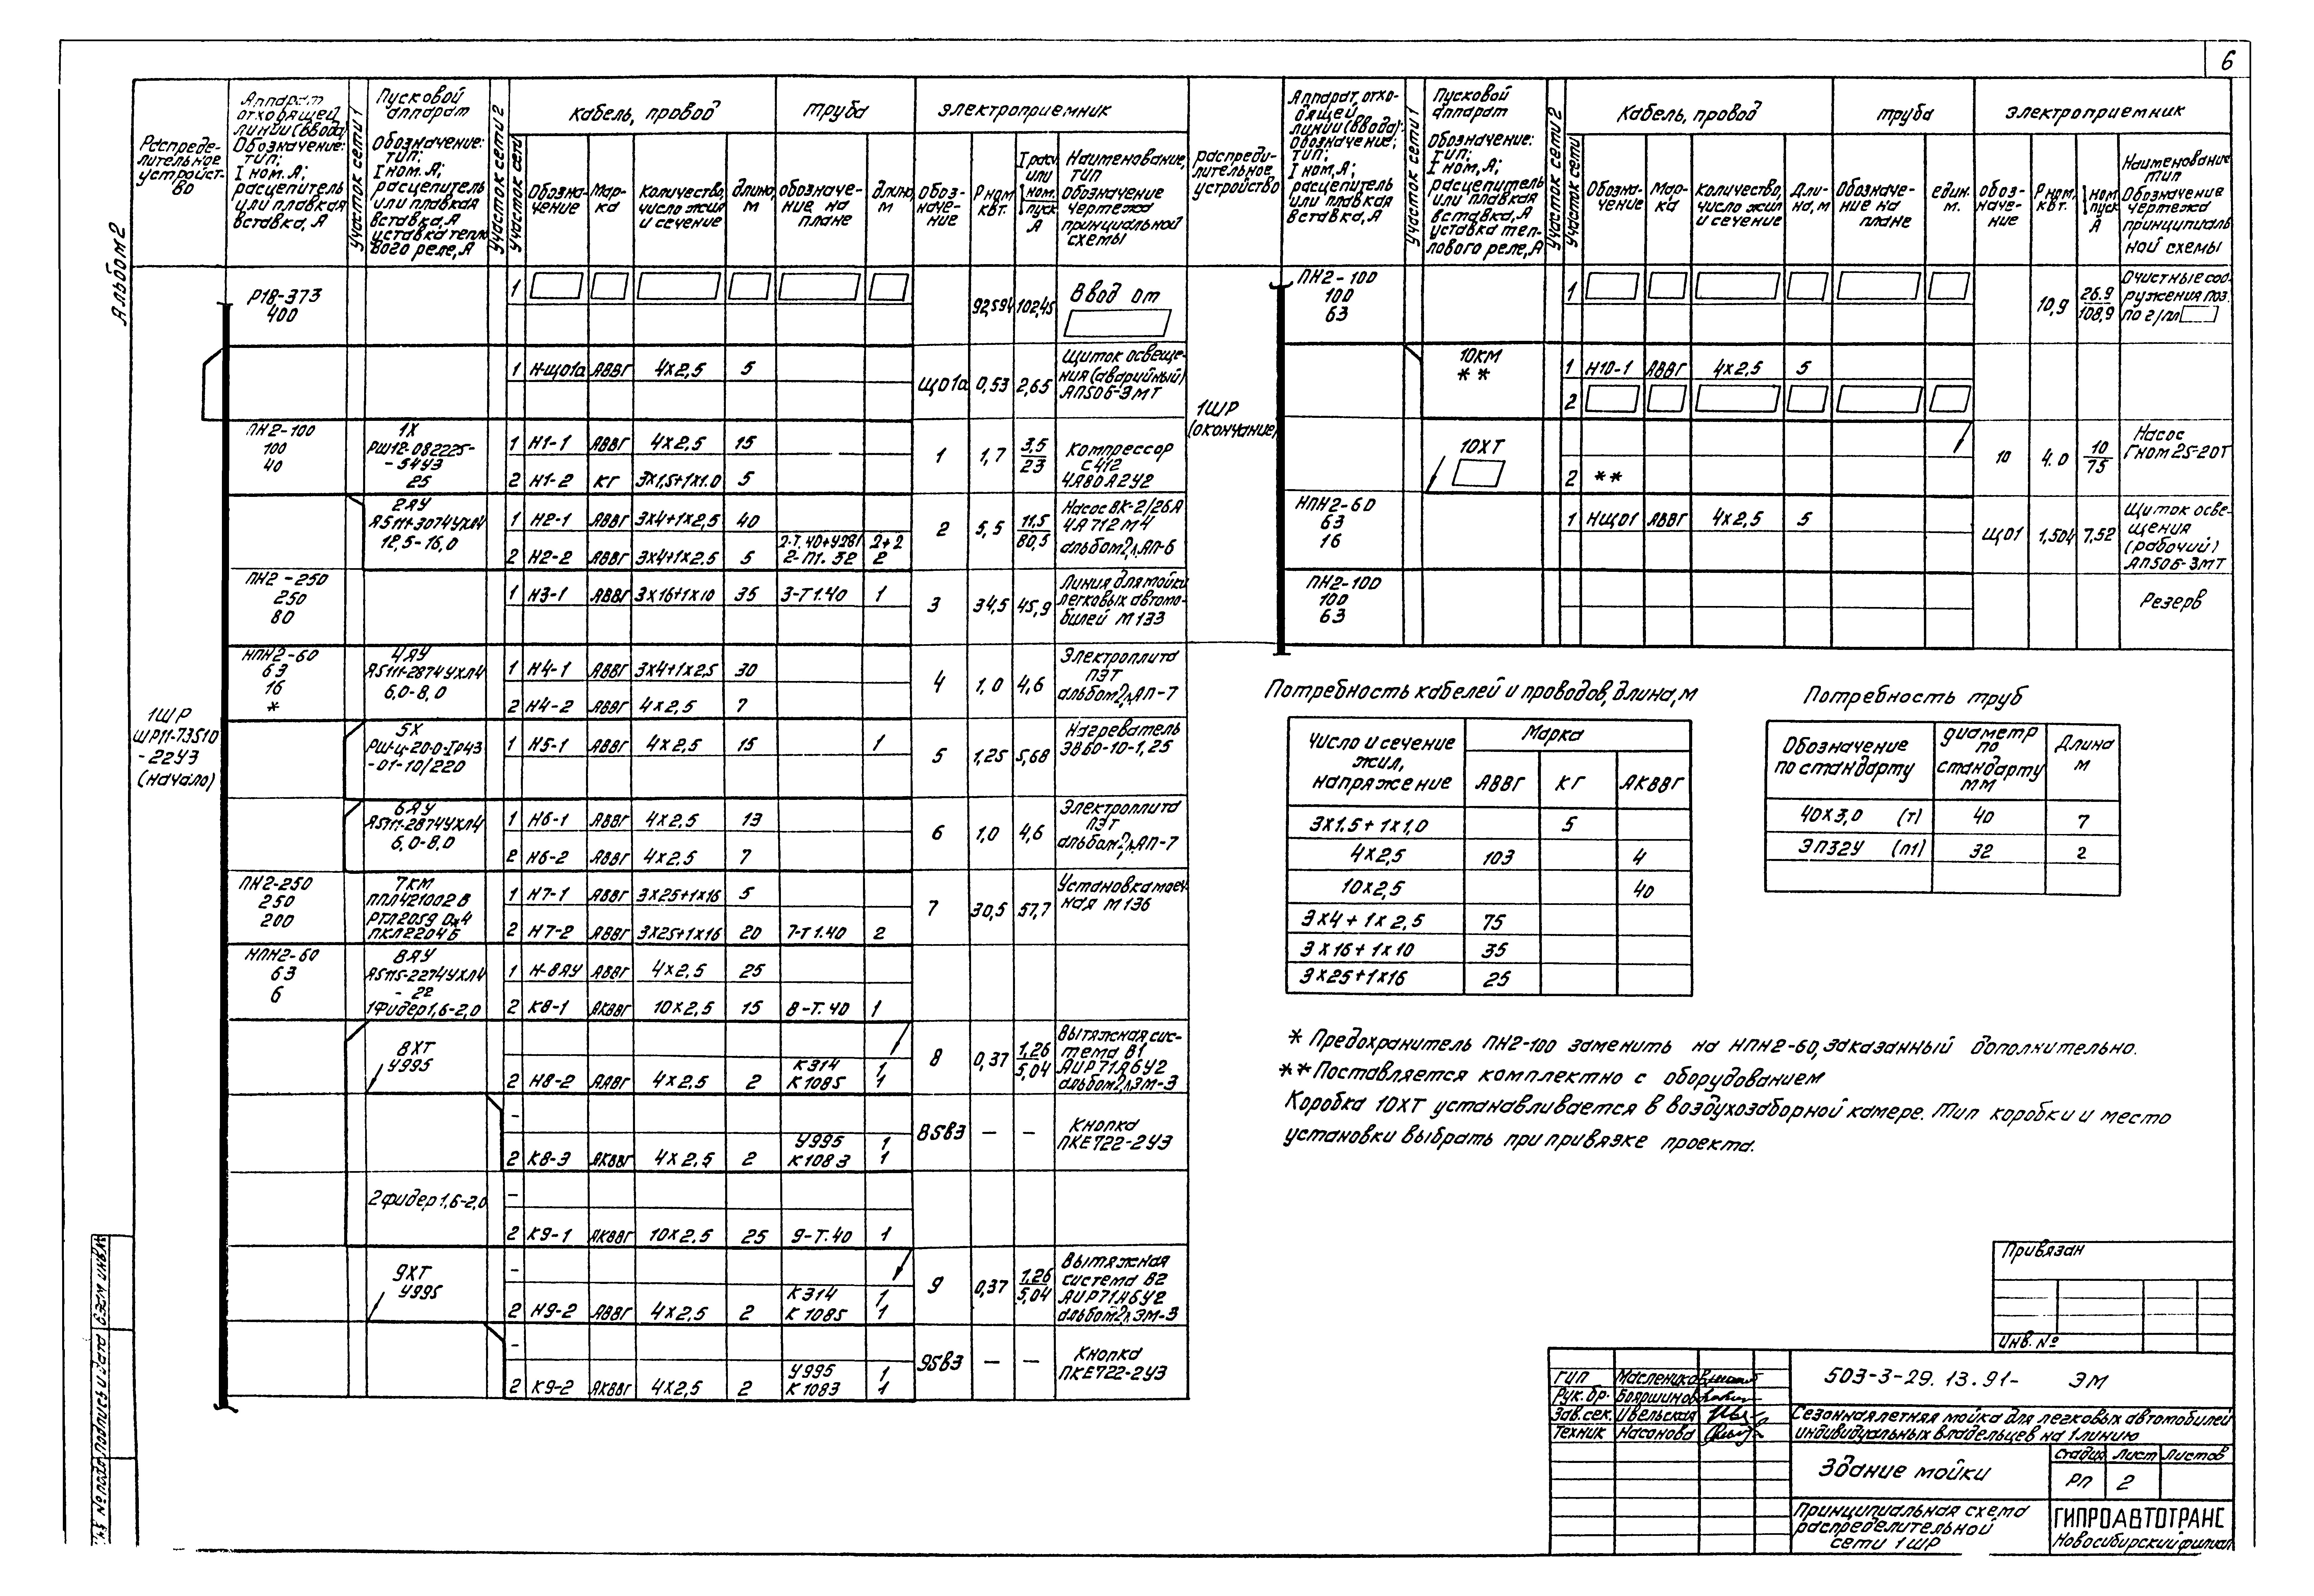 6
Альбом 2
Распреде-
лительное
устройст-
во
Аппарат
отходящей
линии (ввода)
Обозначение:
тип;
I ном. А;
расцепитель
или плавкая
вставка, А
Участок сети 1
Пусковой
аппарат
Обозначение:
тип;
I ном. А;
расцепитель
или плавкая
вставка, А
уставка тепло-
вого реле, А
Участок сети 2
Участок сети
Кабель, провод
Обозна-
чение
Мар-
ка
Количество,
число жил
и сечение
Длина,
м
труба
обозначе-
ние на
плане
Длина,
м
электроприемник
Обоз-
наче-
ние
Р ном
квт.
I расч
или
I ном.
I пуск
А
Наименование,
тип
Обозначение
чертежа
принципиальной
схемы
1ШР
ШР11-73510
-22У3
(начало)
Р18-373
400
1
92,594 102,45
Ввод от
1 Н-що1а АВВГ 4х2,5 5
ЩО1а 0,53 2,65
Щиток освеще-
ния (аварийный)
АП50Б-3МТ
ПН2-100
100
40
1Х
РШ12-082225-
-54У3
25
1 Н1-1 АВВГ 4х2,5 15
2 Н1-2 КГ 3х1,5+1х1.0 5
1 1,7 3,5/23
Компрессор
С412
4А80А2У2
2ЯУ
Я5111-3074УХЛ4
12,5-16,0
1 Н2-1 АВВГ 3х4+1х2,5 40
2 Н2-2 АВВГ 3х4+1х2.5 5
2-П1. 32 2
2+2
2 5,5 11,5/80,5
Насос ВК-2/26А
4А 712 М4
альбом 2, л. АП-6
ПН2-250
250
80
1 Н3-1 АВВГ 3х16+1х10 35 3-Т1.40 1
3 34,5 45,9
Линия для мойки
легковых автомо-
билей М133
НПН2-60
63
16
*
4ЯУ
Я5111-2874УХЛ4
6,0-8,0
1 Н4-1 АВВГ 3х4+1х2,5 30
2 Н4-2 АВВГ 4х2,5 7
4 1,0 4,6
Электроплита
ПЭТ
альбом 2, л. АП-7
5Х
РШ-ц-20-0-IP43
-01-10/220
1 Н5-1 АВВГ 4х2,5 15 1
5 1,25 5,68
Нагреватель
ЭВ60-10-1,25
6ЯУ
Я5111-2874УХЛ4
6,0-8,0
1 Н6-1 АВВГ 4х2,5 13
2 Н6-2 АВВГ 4х2,5 7
6 1,0 4,6
Электроплита
ПЭТ
альбом 2, л. АП-7
ПН2-250
250
200
7КМ
ПМЛ421002В
РТЛ2059 О*4
ПКЛ2204Б
1 Н7-1 АВВГ 3х25+1х16 5
2 Н7-2 АВВГ 3х25+1х16 20 7-Т1.40 2
7 30,5 57,7
Установка моеч-
ная М136
НПН2-60
63
6
8ЯУ
Я5115-2274УХЛ4
- 22
1фидер 1,6-2,0
1 Н-8ЯУ АВВГ 4х2,5 25
2 К8-1 АКВВГ 10х2,5 15 8-Т.40 1
8ХТ
У995
К314 1
2 Н8-2 АВВГ 4х2,5 2 К1085 1
8 0,37 1,26/5,04
Вытяжная сис-
тема В1
АИР71А6У2
альбом 2, л. ЭМ-3
-
У995 1
2 К8-3 АКВВГ 4х2,5 2 К1083 1
8SB3 — —
Кнопка
ПКЕ722-2У3
2фидер 1,6-2,0
-
2 К9-1 АКВВГ 10х2,5 25 9-Т.40 1
9ХТ
У995
-
К314 1
2 Н9-2 АВВГ 4х2,5 2 К1085 1
9 0,37 1,26/5,04
Вытяжная
система В2
АИР71А6У2
альбом 2, л. ЭМ-3
-
У995 1
2 К9-2 АКВВГ 4х2,5 2 К1083 1
9SB3 — —
Кнопка
ПКЕ722-2У3
распреди-
лительное
устройство
Аппарат, отхо-
дящей
линии (ввода):
Обозначение;
тип;
I ном, А;
расцепитель
или плавкая
вставка, А
Участок сети 1
Пусковой
аппарат
Обозначение:
тип;
I ном, А;
расцепитель
или плавкая
вставка, А
уставка теп-
лового реле, А
Участок сети 2
Участок сети
Кабель, провод
Обозна-
чение
Мар-
ка
Количество,
число жил
и сечение
Дли-
на, м
труба
Обозначе-
ние на
плане
един.
м.
электроприемник
обоз-
наче-
ние
Р ном,
квт.
I ном
I пуск
А
Наименование
тип
Обозначение
чертежа
принципиаль
ной схемы
1ШР
(окончание)
ПН2-100
100
63
1
10,9 26.9/108,9
Очистные соо-
ружения поз.
по г/пл
10КМ
* *
1 Н10-1 АВВГ 4х2,5 5
2
10ХТ
2 * *
10 4.0 10/75
Насос
Гном 25-20Т
НПН2-60
63
16
1 НЩ01 АВВГ 4х2,5 5
ЩО1 1,504 7,52
Щиток осве-
щения
(рабочий)
АП50Б-3МТ
ПН2-100
100
63
Резерв
Потребность кабелей и проводов, длина, м
Число и сечение
жил,
напряжение
Марка
АВВГ КГ АКВВГ
3х1.5+1х1,0 5
4х2,5 103 4
10х2,5 40
3х4+1х2,5 75
3х16+1х10 35
3х25+1х16 25
Потребность труб
Обозначение
по стандарту
диаметр
по
стандарту
мм
Длина
м
40х3,0 (Т) 40 7
ЭП32У (п1) 32 2
* Предохранитель ПН2-100 заменить на НПН2-60, заказанный дополнительно.
** Поставляется комплектно с оборудованием
Коробка 10ХТ устанавливается в воздухозаборной камере. Тип коробки и место
установки выбрать при привязке проекта.
Привязан
Инв. №
ГИП Маслеников
Рук. бр. Бояршинов
Зав. сек. Ивельская
Техник Насонова
503-3-29.13.91- ЭМ
Сезонная летняя мойка для легковых автомобилей
индивидуальных владельцев на 1 линию
Здание мойки
Стадия Лист Листов
РП 2
Принципиальная схема
распределительной
сети 1ШР
ГИПРОАВТОТРАНС
Новосибирский филиал
Инв. № подл. Подпись и дата Взам инв. №